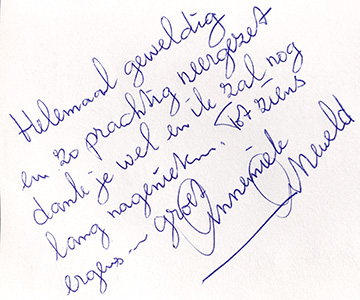 Helemaal geweldig
en zo prachtig neergezet
dank je wel en ik zal nog
lang nagenieten. Tot ziens
ergens... groet Annemiek